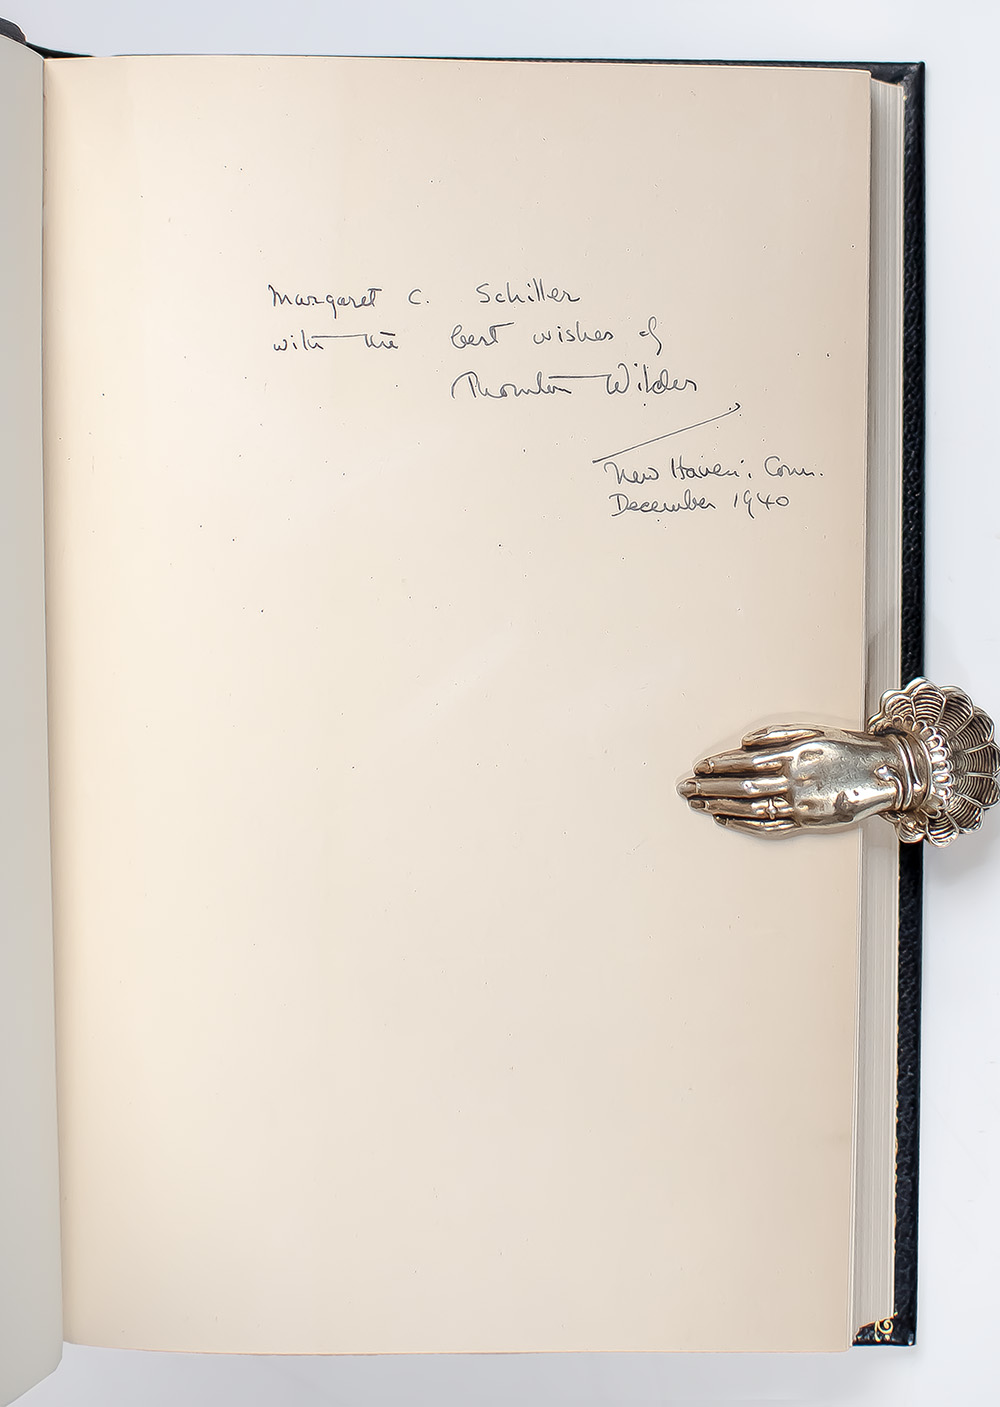 Margaret C. Schiller
with the best wishes of
Thornton Wilder
New Haven, Conn.
December 1940